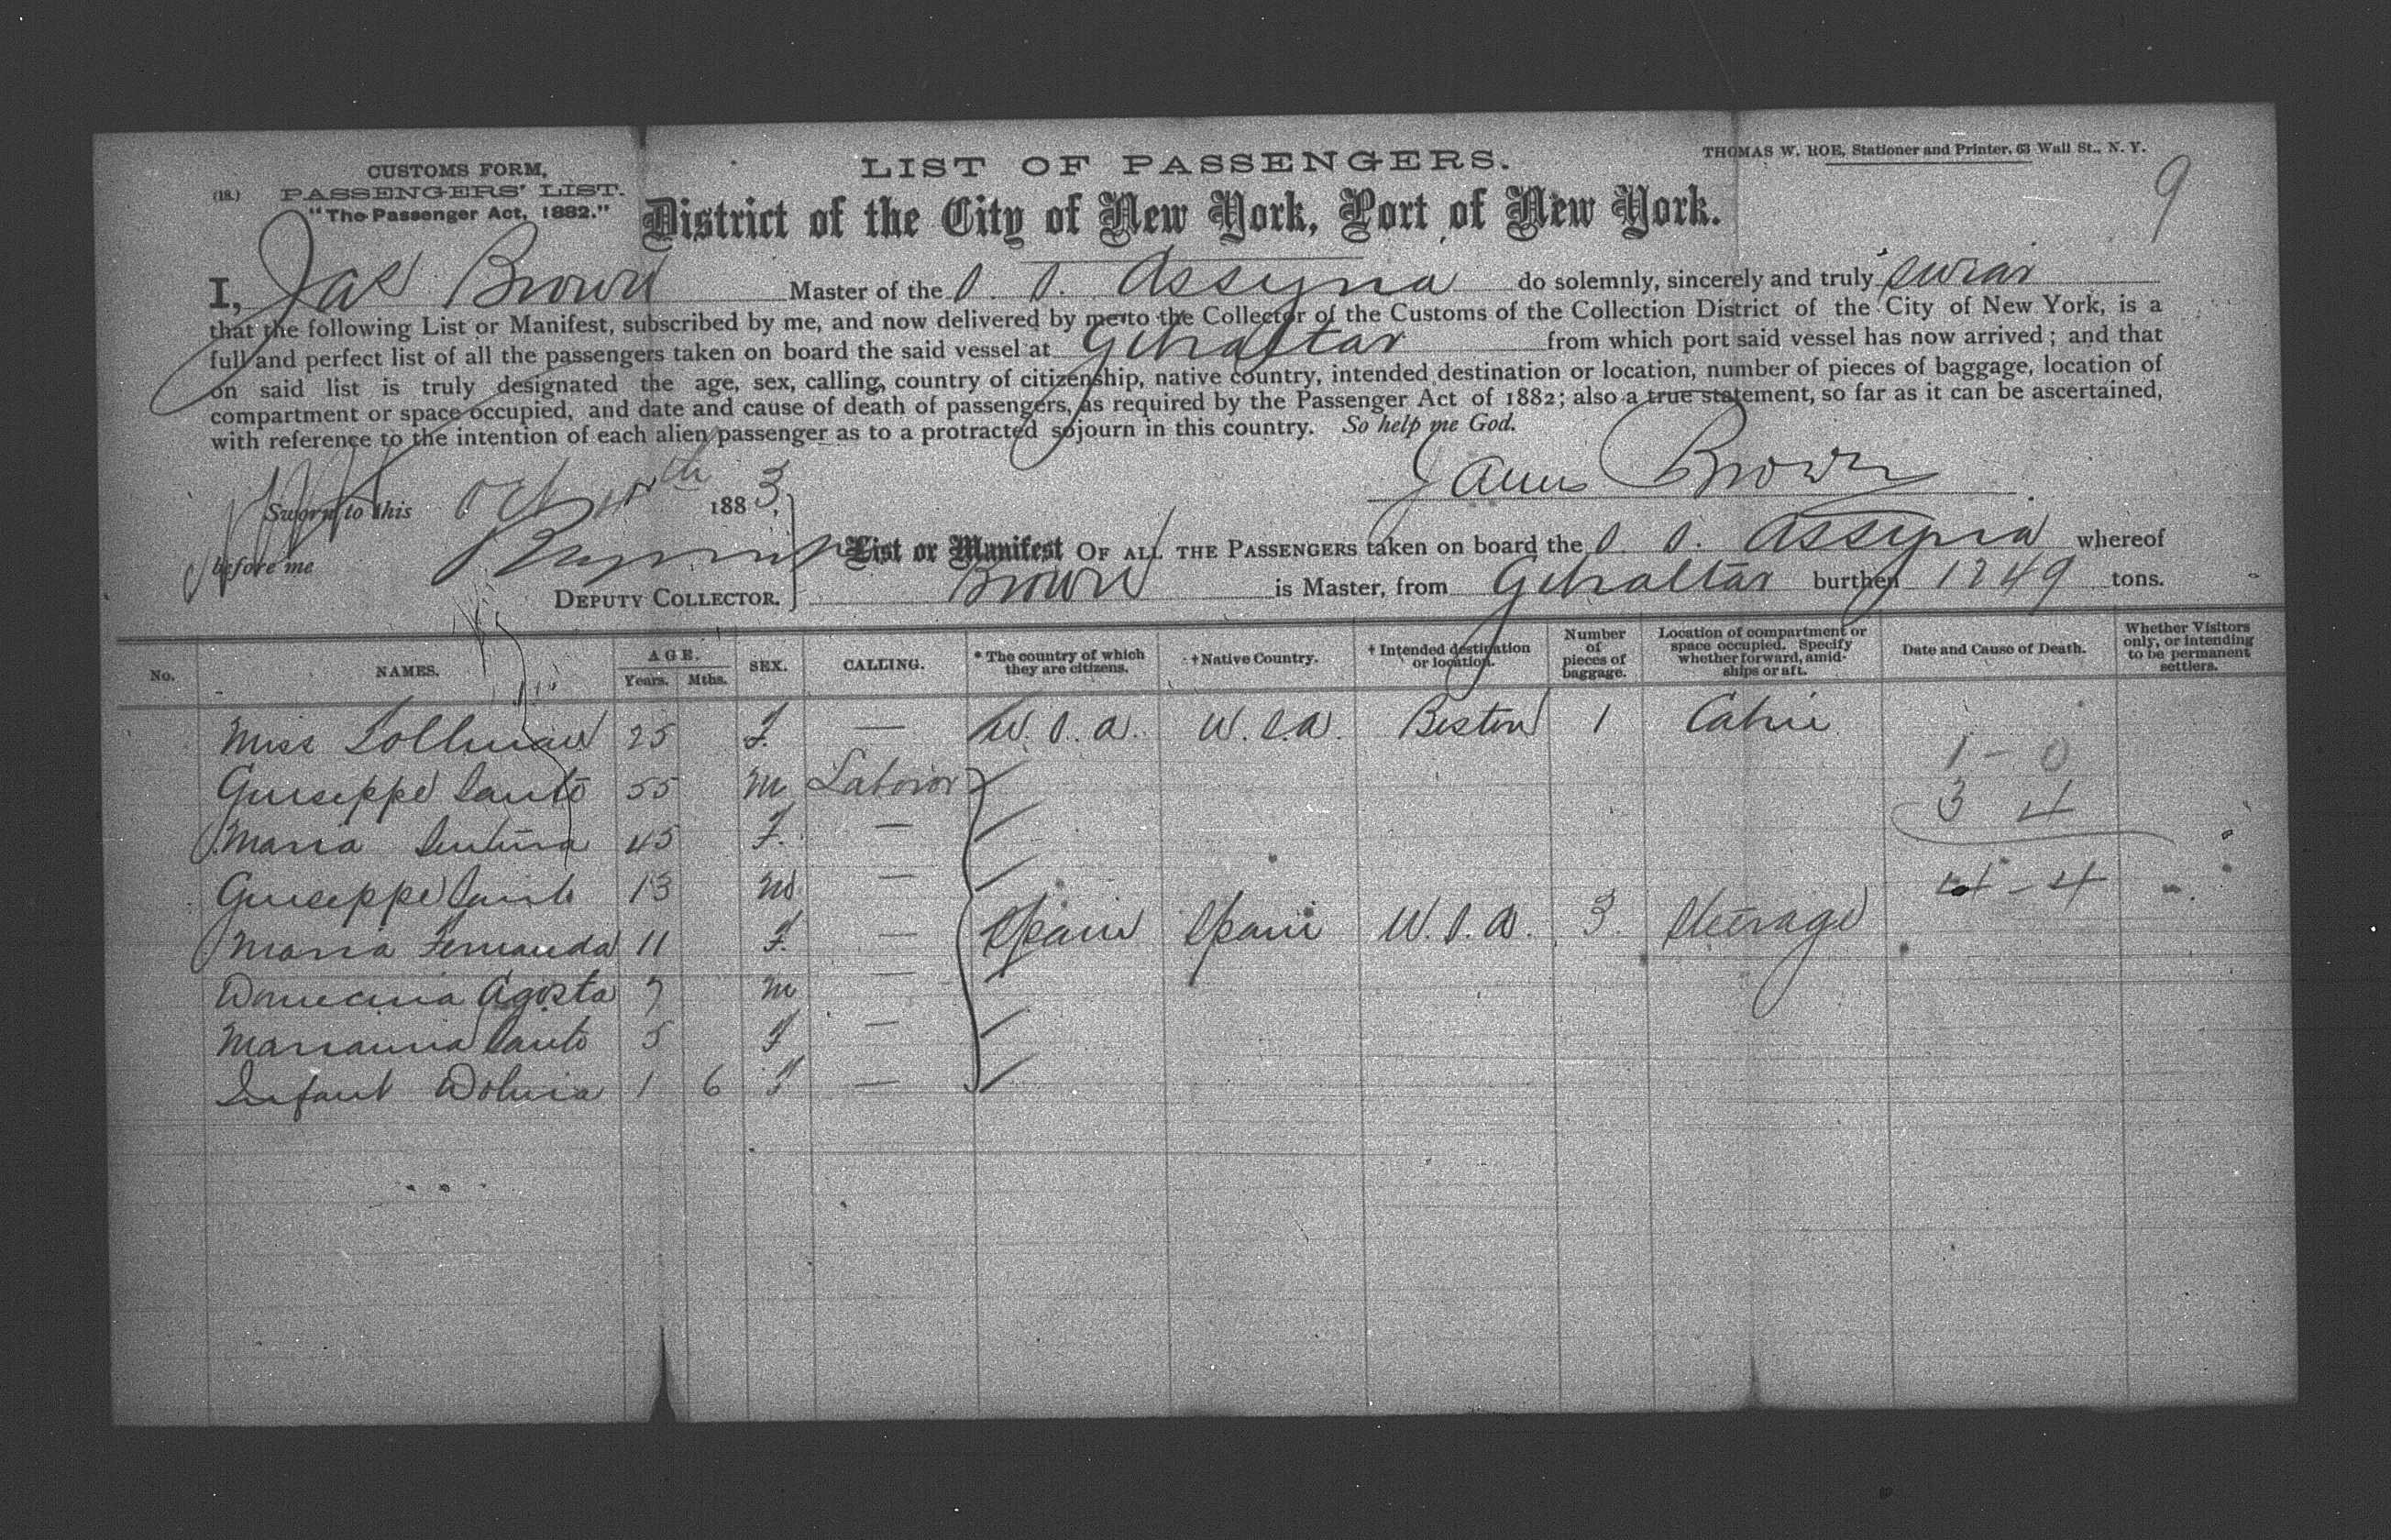 CUSTOMS FORM,
(18.) PASSENGERS' LIST.
"The Passenger Act, 1882."
LIST OF PASSENGERS.
THOMAS W. ROE, Stationer and Printer, 63 Wall St., N. Y.
9
District of the City of New York, Port of New York.
I, Jas Brown Master of the S. S. Assyria do solemnly, sincerely and truly swear
that the following List or Manifest, subscribed by me, and now delivered by me to the Collector of the Customs of the Collection District of the City of New York, is a
full and perfect list of all the passengers taken on board the said vessel at Gibraltar from which port said vessel has now arrived; and that
on said list is truly designated the age, sex, calling, country of citizenship, native country, intended destination or location, number of pieces of baggage, location of
compartment or space occupied, and date and cause of death of passengers, as required by the Passenger Act of 1882; also a true statement, so far as it can be ascertained,
with reference to the intention of each alien passenger as to a protracted sojourn in this country. So help me God.
James Brown
Sworn to this Oct 1883,
before me
DEPUTY COLLECTOR.
List or Manifest OF ALL THE PASSENGERS taken on board the S. S. Assyria whereof
Brown is Master, from Gibraltar burthen 1249 tons.
No. NAMES. AGE. Years. Mths. SEX. CALLING. * The country of which they are citizens. † Native Country. † Intended destination or location. Number of pieces of baggage. Location of compartment or space occupied. Specify whether forward, amidships or aft. Date and Cause of Death. Whether Visitors only, or intending to be permanent settlers.
Miss 25 F. — U. S. A. U. S. A. Boston 1 Cabin
1 - 0
Guiseppe Santo 55 M Labovor
3 4
Maria 45 F. —
Guiseppe Santo 13 M —
4 - 4
Maria Fernanda 11 F. — Spain Spain U. S. A. 3 Steerage
Agosta 7 M —
Marianna Santo 5 F —
Infant 1 6 F —